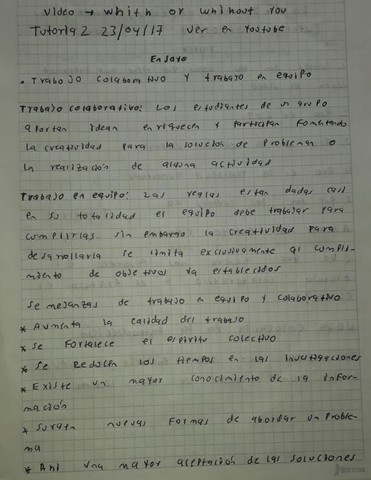 Video → whith or whithout you
Tutoria 2 23/04/17 ver en youtube
Ensayo
• Trabajo colaborativo y trabajo en equipo
Trabajo colaborativo: Los estudiantes de un grupo
aportan idean enriquecen y participan fomentando
la creatividad para la solucion de problemas o
la realización de alguna actividad
Trabajo en equipo: Las reglas estan dadas casi
en su totalidad el equipo debe trabajar para
cumplirlas sin embargo la creatividad para
desarollarla se limita exclusivamente al cumpli-
miento de objetivos ya establecidos
Semejanzas de trabajo en equipo y colaborativo
* Aumenta la calidad del trabajo
* Se Fortalece el espiritu colectivo
* Se Reducen los tiempos en las investigaciones
* Existe un mayor conocimiento de la infor-
mación
* Surgen nuevas Formas de abordar un Proble-
ma
* Ahi una mayor aceptación de las soluciones